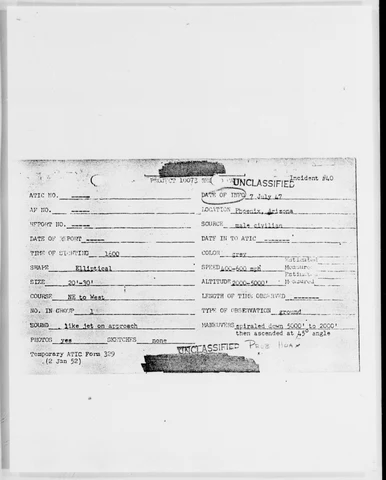 PROJECT 10073
UNCLASSIFIED
Incident #40
ATIC NO. -----
DATE OF INFO 7 July 47
AF NO. -----
LOCATION Phoenix, Arizona
REPORT NO. -----
SOURCE male civilian
DATE OF REPORT -----
DATE IN TO ATIC -------
TIME OF SIGHTING 1600
COLOR grey
SHAPE Elliptical
SPEED 400-600 mph
SIZE 20'-30'
ALTITUDE 2000-5000'
COURSE NE to West
LENGTH OF TIME OBSERVED -------
NO. IN GROUP 1
TYPE OF OBSERVATION ground
SOUND like jet on approach
MANEUVERS spiraled down 5000' to 2000'
then ascended at 45° angle
PHOTOS yes SKETCHES none
UNCLASSIFIED
Temporary ATIC Form 329
(2 Jan 52)